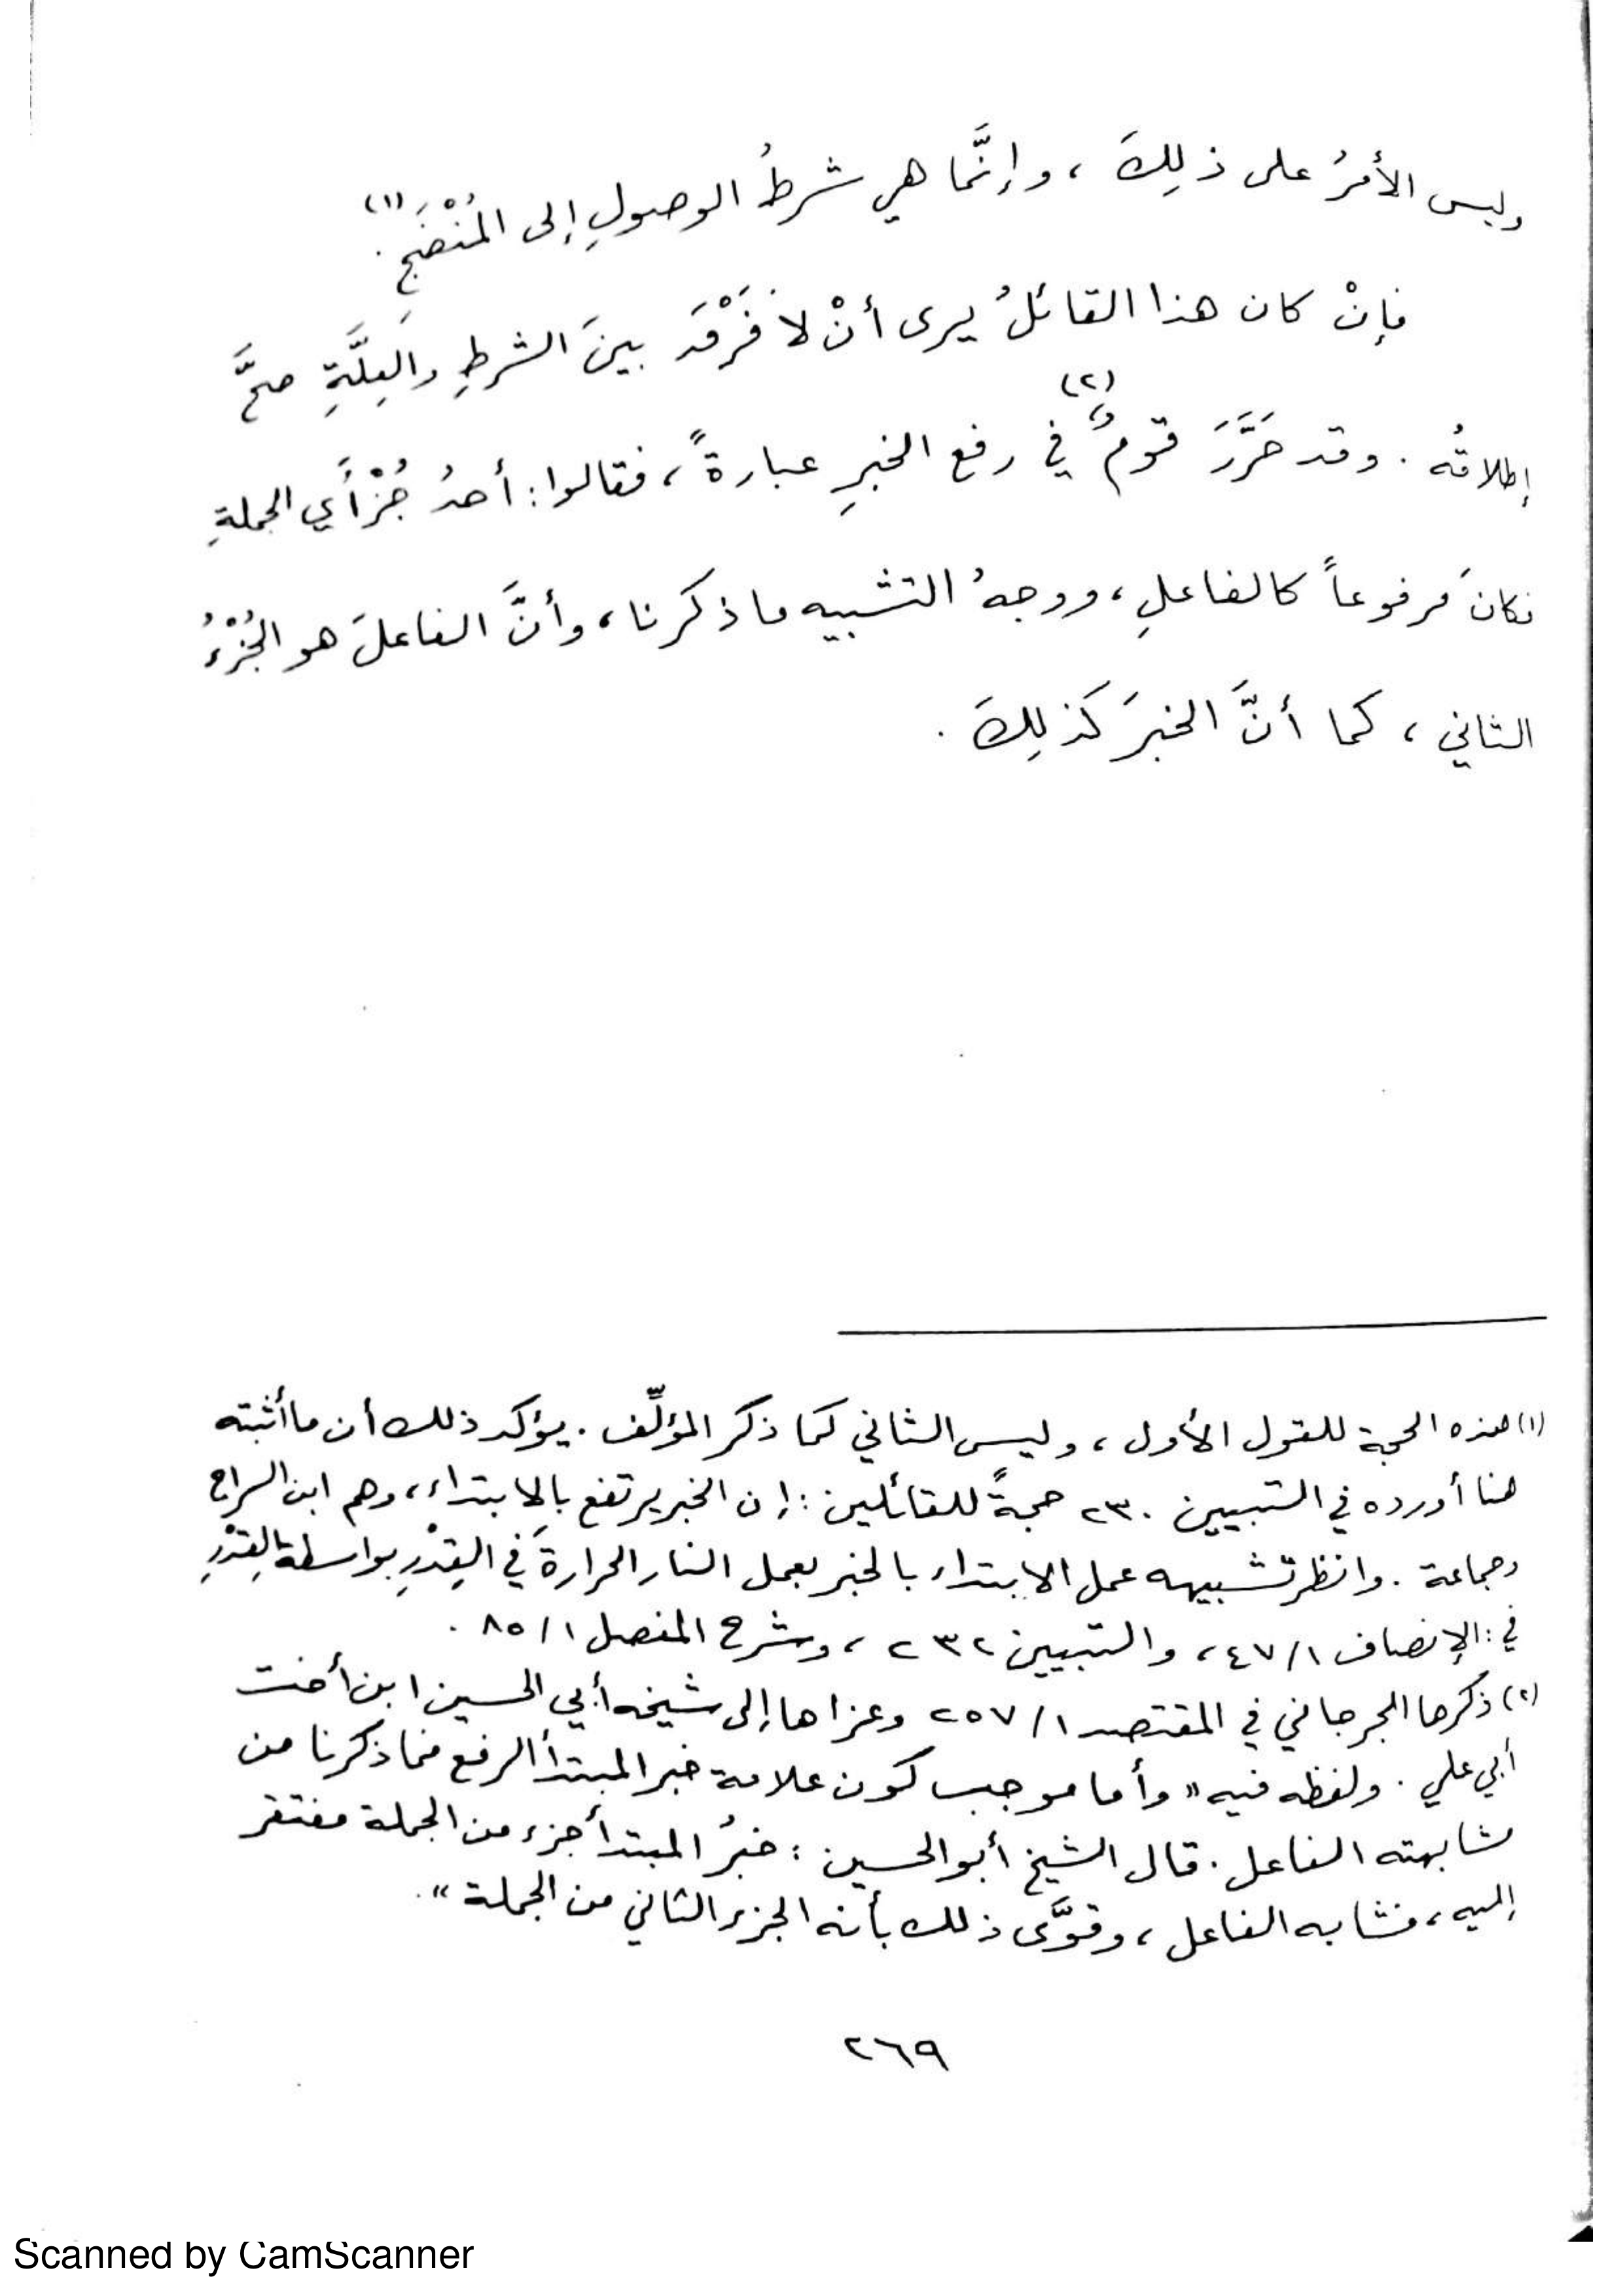 وليس الأمرُ على ذلِكَ ، وإنَّما هي شرطُ الوصولِ إلى المُنْضَجِ (١) .
فإنْ كان هذا القائلُ يرى أنْ لا فَرْقَ بينَ الشرطِ والعِلَّةِ صحَّ
إطلاقُه . وقد حَرَّرَ قومٌ (٢) في رفع الخبرِ عبارةً ، فقالوا : أحدُ جُزْأَي الجملةِ
فكانَ مرفوعاً كالفاعلِ ، ووجهُ التشبيه ما ذكرنا ، وأنَّ الفاعلَ هو الجُزْءُ
الثاني ، كما أنَّ الخبرَ كَذلِكَ .
(١) هذه الحجة للقول الأول ، وليس الثاني كما ذكر المؤلِّف . يؤكد ذلك أن ما أثبته
هنا أورده في التبيين ٢٣٠ حجةً للقائلين : إن الخبر يرتفع بالابتداء ، وهم ابن السراج
وجماعة . وانظر تشبيهه عمل الابتداء بالخبر بعمل النار الحرارةَ في القِدْرِ بواسطة القِدْرِ
في : الإنصاف ١/٤٧ ، والتبيين ٢٣٢ ، وشرح المفصل ١/٨٥ .
(٢) ذكرها الجرجاني في المقتصد ١/٢٥٧ وعزاها إلى شيخه أبي الحسين ابن أخت
أبي علي . ولفظه فيه « وأما موجب كون علامة خبر المبتدأ الرفع فما ذكرنا من
مشابهته الفاعل . قال الشيخ أبو الحسين : خبرُ المبتدأ جزء من الجملة مفتقر
إليه ، فشابه الفاعل ، وقوَّى ذلك بأنه الجزء الثاني من الجملة » .
٢٦٩
Scanned by CamScanner